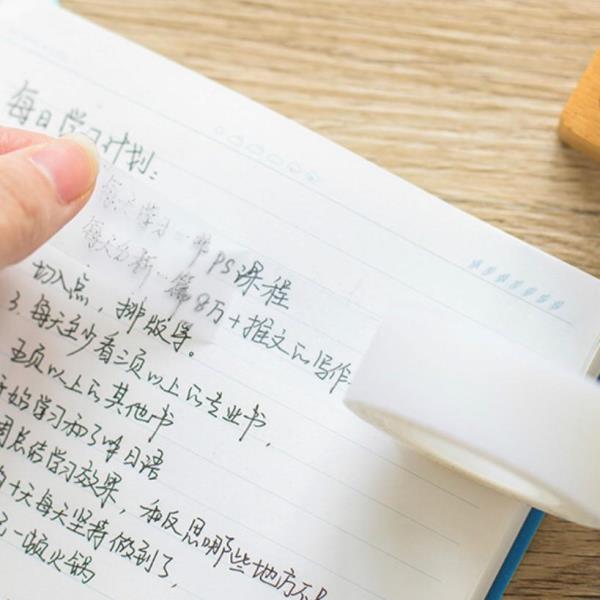 每日学习计划:
每天学习一节PS课程
每天分析一篇8万+推文的写作
切入点,排版等。
3.每天至少看三页以上的专业书,
五页以上的其他书
开始学习和了解日语
周总结学习效果,和反思哪些地方不
十天每天坚持做到了,
一顿火锅